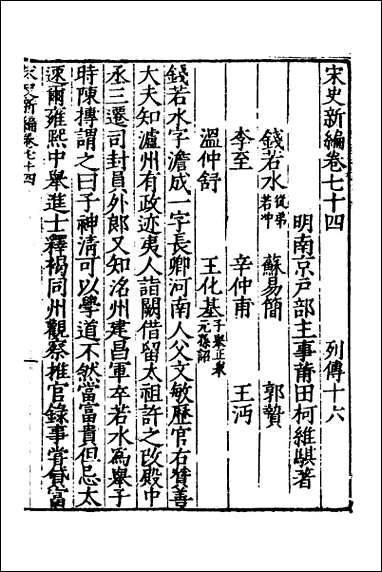 宋史新編卷七十四　列傳十六
明南京戶部主事莆田柯維騏著
錢若水從弟若冲　蘇易簡　郭贄
李至　辛仲甫　王沔
溫仲舒　王化基子舉正舉元孫詔
錢若水字澹成一字長卿河南人父文敏歷官右贊善
大夫知瀘州有政迹夷人詣闕借留太祖許之改殿中
丞三遷司封員外郎又知洺州建昌軍卒若水為舉子
時陳摶謂之曰子神清可以學道不然當富貴但忌太
速爾雍熙中舉進士釋褐同州觀察推官錄事嘗貸富
宋史新編卷七十四　一